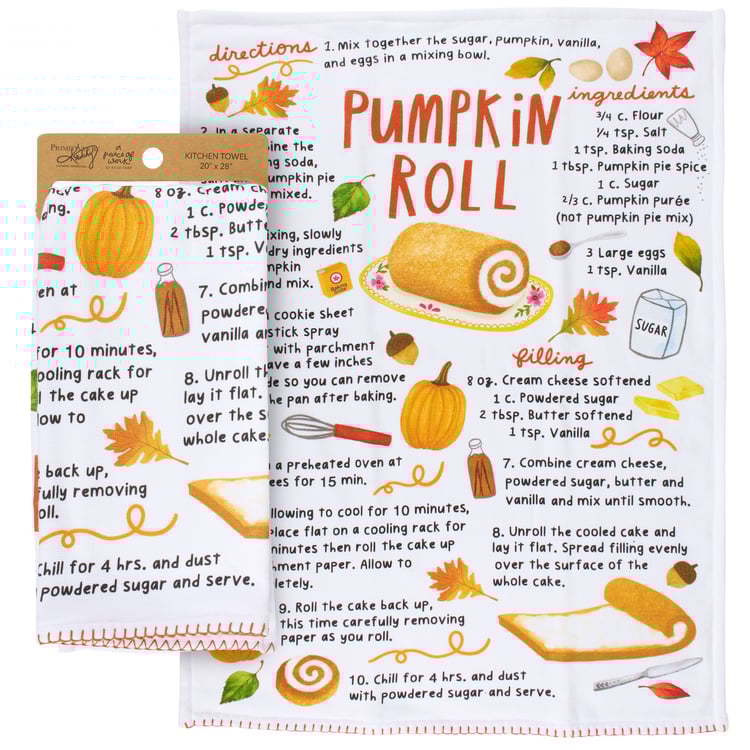 directions
1. Mix together the sugar, pumpkin, vanilla,
and eggs in a mixing bowl.
PUMPKIN
ROLL
ingredients
3/4 c. Flour
1/4 tsp. Salt
1 tsp. Baking Soda
1 tbsp. Pumpkin pie Spice
1 c. Sugar
2/3 c. Pumpkin purée
(not pumpkin pie mix)
3 Large eggs
1 tsp. Vanilla
2. In a separate
ine the
ng soda,
umpkin pie
mixed.
ixing, slowly
dry ingredients
mpkin
nd mix.
cookie sheet
stick spray
with parchment
ave a few inches
de so you can remove
he pan after baking.
SUGAR
filling
8 oz. Cream cheese softened
1 c. Powdered sugar
2 tbsp. Butter softened
1 tsp. Vanilla
a preheated oven at
ees for 15 min.
llowing to cool for 10 minutes,
place flat on a cooling rack for
minutes then roll the cake up
hment paper. Allow to
letely.
7. Combine cream cheese,
powdered sugar, butter and
vanilla and mix until smooth.
8. Unroll the cooled cake and
lay it flat. Spread filling evenly
over the surface of the
whole cake.
9. Roll the cake back up,
this time carefully removing
paper as you roll.
10. Chill for 4 hrs. and dust
with powdered sugar and serve.
KITCHEN TOWEL
20" x 28"
a peace of
work
ng.
8 oz. Cream ch
1 c. Powde
2 tbsp. Butt
1 tsp. V
en at
7. Combin
powdere
vanilla a
for 10 minutes,
ooling rack for
l the cake up
low to
8. Unroll th
lay it flat.
over the s
whole cake
back up,
fully removing
oll.
Chill for 4 hrs. and dust
powdered sugar and serve.